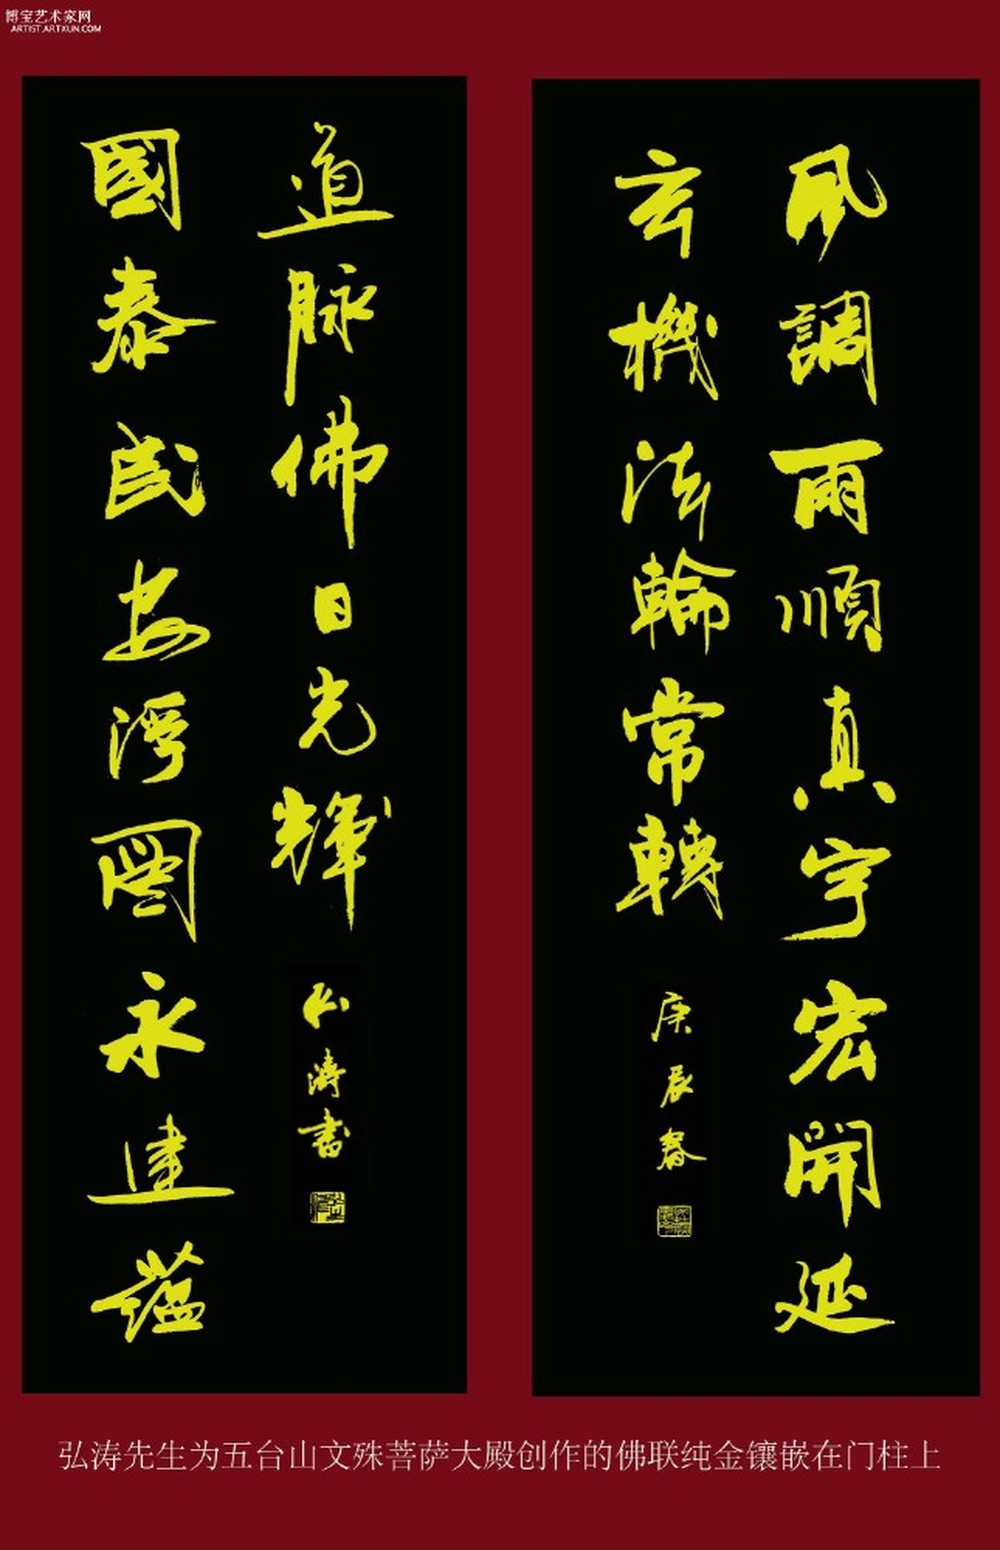 博宝艺术家网
ARTIST.ARTXUN.COM
風調雨順真宇宏開延
玄機法輪常轉
庚辰春
國泰民安浮圖永建蘊
道脉佛日光輝
弘濤書
弘涛先生为五台山文殊菩萨大殿创作的佛联纯金镶嵌在门柱上